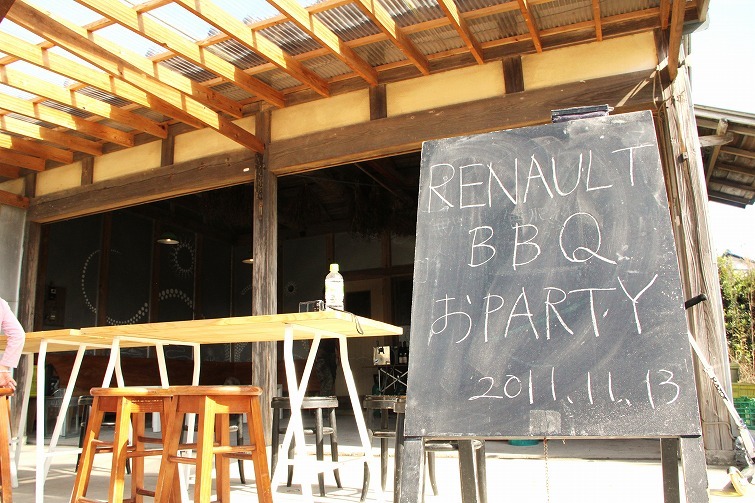 RENAULT
BBQ
おPARTY
2011.11.13